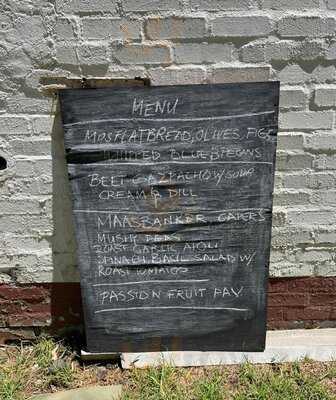 MENU
MOSFLATBREAD, OLIVES, FIGS
WHIPPED BLUE & PECANS
BEET GAZPACHO W/ SOUR
CREAM & DILL
MAASBANKER, CAPERS
MUSHY PEAS
ROAST GARLIC AIOLI
SPINACH, BASIL SALAD W/
ROAST TOMATOS
PASSION FRUIT PAV